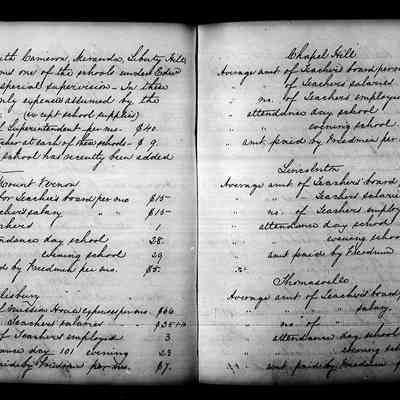 Cameron, Miranda, Liberty Hill
one of the schools under Edw
special supervision. In these
only expenses assumed by the
(except school supplies)
Superintendent per mo. $40.
at each of these schools. $9.
school has recently been added
Mount Vernon
for Teacher's board per mo $15-
Teacher's salary " " $15-
1
day school 28.
evening school 29
by Freedmen per mo. $5.
Mission House expenses per mo. $66
Teachers salaries
of Teachers employed 3
day 101 evening 23
paid by Freedmen per mo. $7.
Chapel Hill
Average amt. of Teacher's board per
" " of Teachers salaries
" no. of Teachers employed
" attendance day school
" " evening school
" amt. paid by Freedmen per
Lincolnton
Average amt of Teachers board
" " Teachers salarie
" no. of Teachers emplo
" attendance day school
" " evening scho
" amt. paid by Freedmen
Thomasville
Average amt. of Teacher's board
" " " salary.
" no. of "
" attendance day school
" " evening sch
" amt. paid by Freedmen